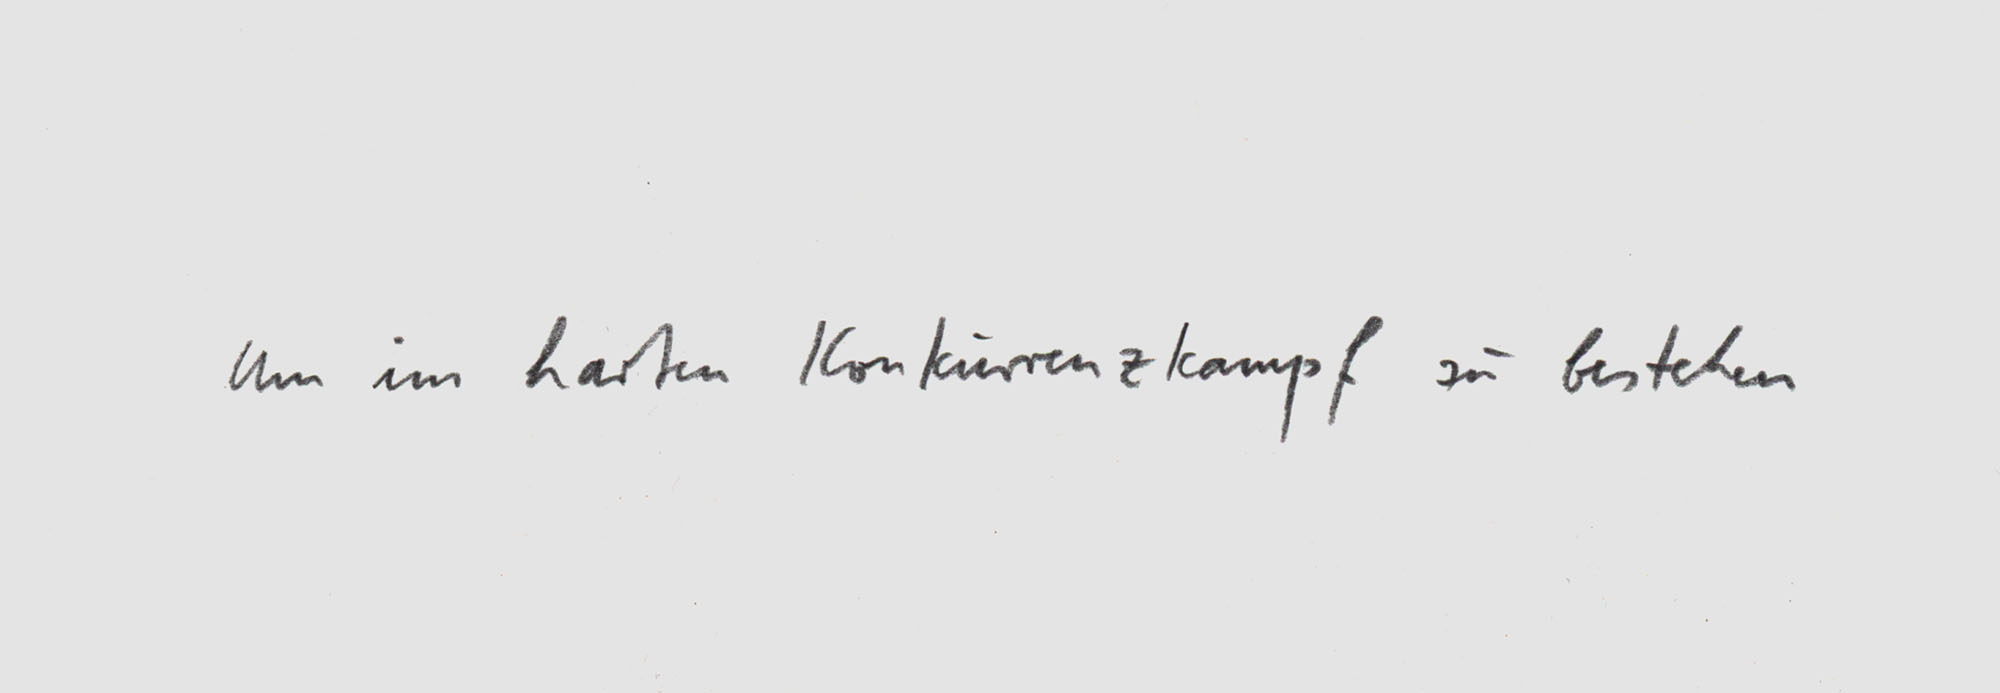 Um im harten Konkurrenzkampf zu bestehen